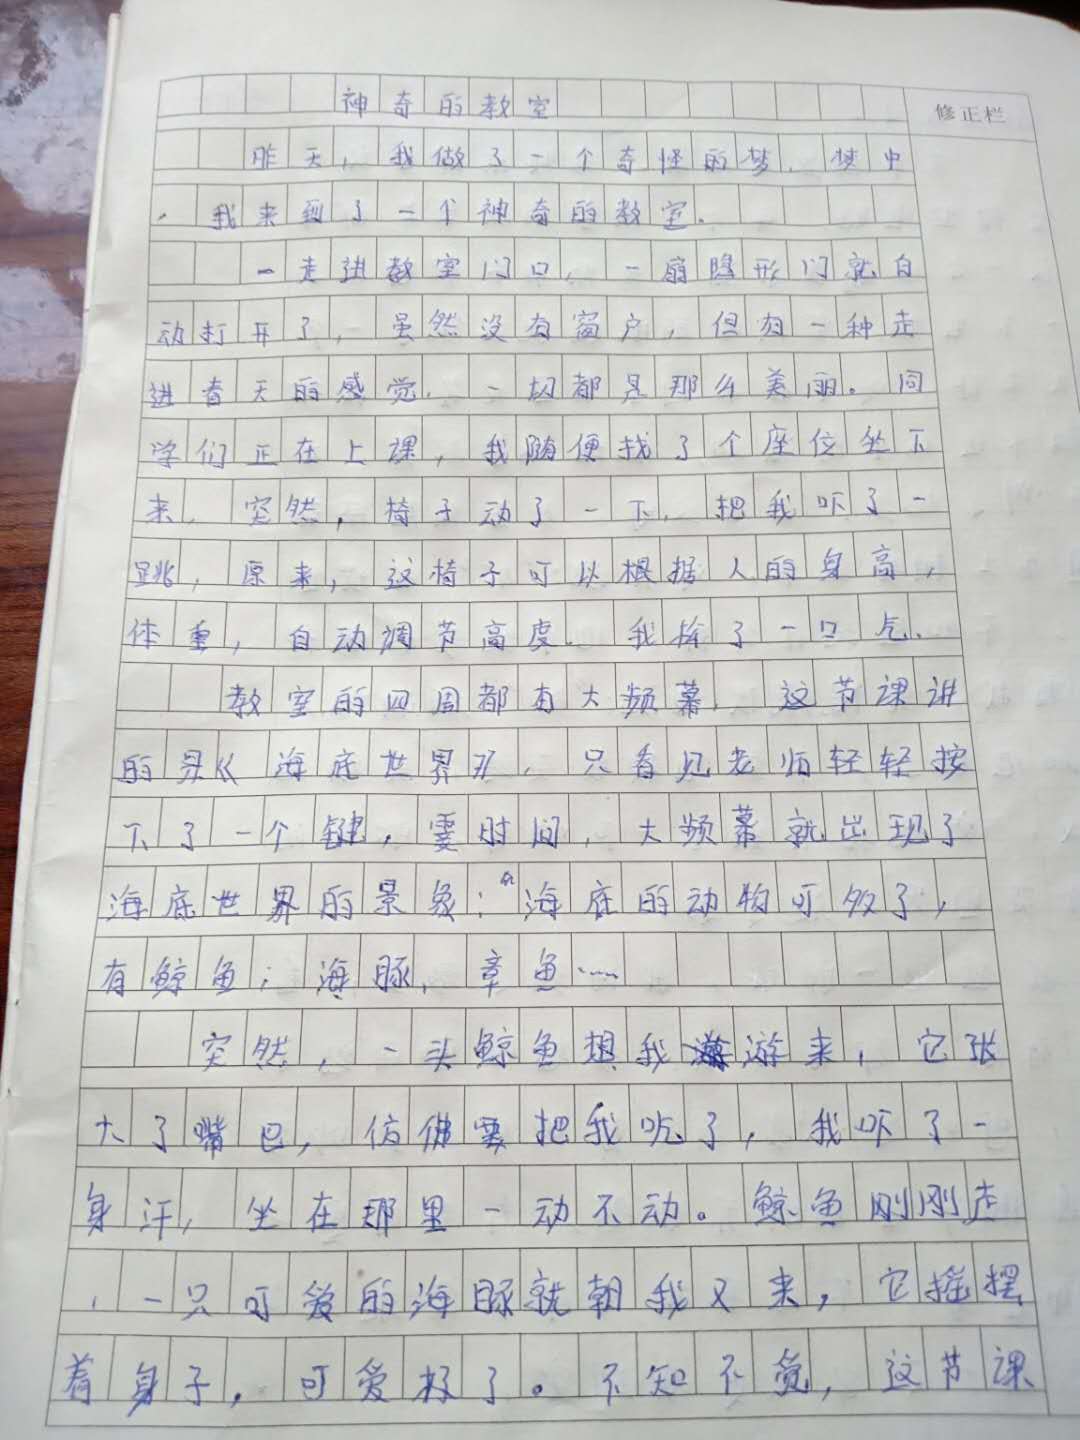 神奇的教室
修正栏
昨天，我做了一个奇怪的梦，梦中
，我来到了一个神奇的教室。
一走进教室门口，一扇隐形门就自
动打开了，虽然没有窗户，但有一种走
进春天的感觉，一切都是那么美丽。同
学们正在上课，我随便找了个座位坐下
来，突然，椅子动了一下，把我吓了一
跳，原来，这椅子可以根据人的身高，
体重，自动调节高度。我了一口气、
教室的四周都有大频幕，这节课讲
的是《海底世界》，只看见老师轻轻按
下了一个键，霎时间，大频幕就出现了
海底世界的景象：“海底的动物可多了，
有鲸鱼；海豚，章鱼……
突然，一头鲸鱼想我游来，它张
大了嘴巴，仿佛要把我吃了，我吓了一
身汗，坐在那里一动不动。鲸鱼刚刚走
，一只可爱的海豚就朝我又来，它摇摆
着身子，可爱极了。不知不觉，这节课